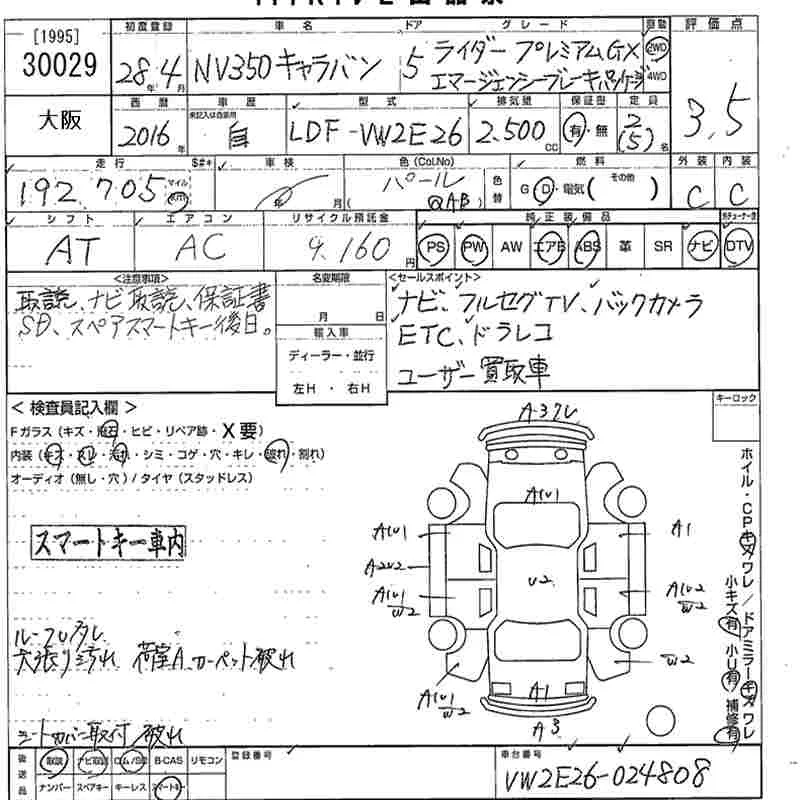 [1995]
30029
大阪
初度登録 車名 ドア グレード 駆動 評価点
28年4月 NV350キャラバン 5 ライダー プレミアムGX 2WD
エマージェンシーブレーキパッケージ 4WD
3.5
西暦 車歴 型式 排気量 保証書 定員
未記入は自家用
2016年 自 LDF-VW2E26 2.500CC 有・無 2(5)名
走行 S#* 車検 色(Col.No) 燃料 外装 内装
192,705 マイル km 年 月( パール QAB) 色替 G・D・電気( その他 ) C C
シフト エアコン リサイクル預託金 純正装備品
AT AC 9,160円 PS PW AW エアB ABS 革 SR ナビ DTV
<注意事項>
取説、ナビ取説、保証書
SD、スペアスマートキー後日。
名変期限
月 日
輸入車
ディーラー・並行
左H・右H
<セールスポイント>
ナビ、フルセグTV、バックカメラ
ETC、ドラレコ
ユーザー買取車
キーロック
<検査員記入欄>
Fガラス(キズ・飛石・ヒビ・リペア跡・X要)
内装(キズ・スレ・汚れ・シミ・コゲ・穴・キレ・破れ・割れ)
オーディオ(無し・穴)/タイヤ(スタッドレス)
スマートキー車内
天張り汚れ 荷室A、カーペット破れ
シートカバー取付/破れ
A1U1
A1U1
A1
A2U2
U2
A1U1
W2
A1U2
W2
W2
A1U1
W2
A1
A3
ホイル・CPキズワレ/ドアミラーキズワレ
小キズ有 小U有 補修有
後送品 取説 ナビ取説 ロム/SD B-CAS リモコン
ナンバー スペアキー キーレス スマートキー
登録番号
車台番号
VW2E26-024808